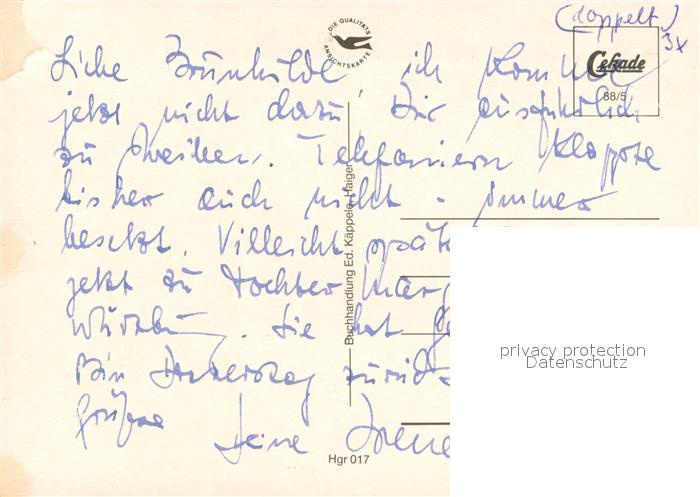 (doppelt)
3x
DIE QUALITÄTS
ANSICHTSKARTE
Cekade
88/5
Liebe Brunhilde, ich komme
jetzt nicht dazu, Dir ausführlich
zu schreiben. Telefonieren klappte
bisher auch nicht - immer
besetzt. Villeicht spät
jetzt zu Tochter Marg
Würzburg. Sie hat
Bin Donnerstag zurück
Grüße
Deine Irene
Buchhandlung Ed. Käppele, Haiger
Hgr 017
privacy protection
Datenschutz